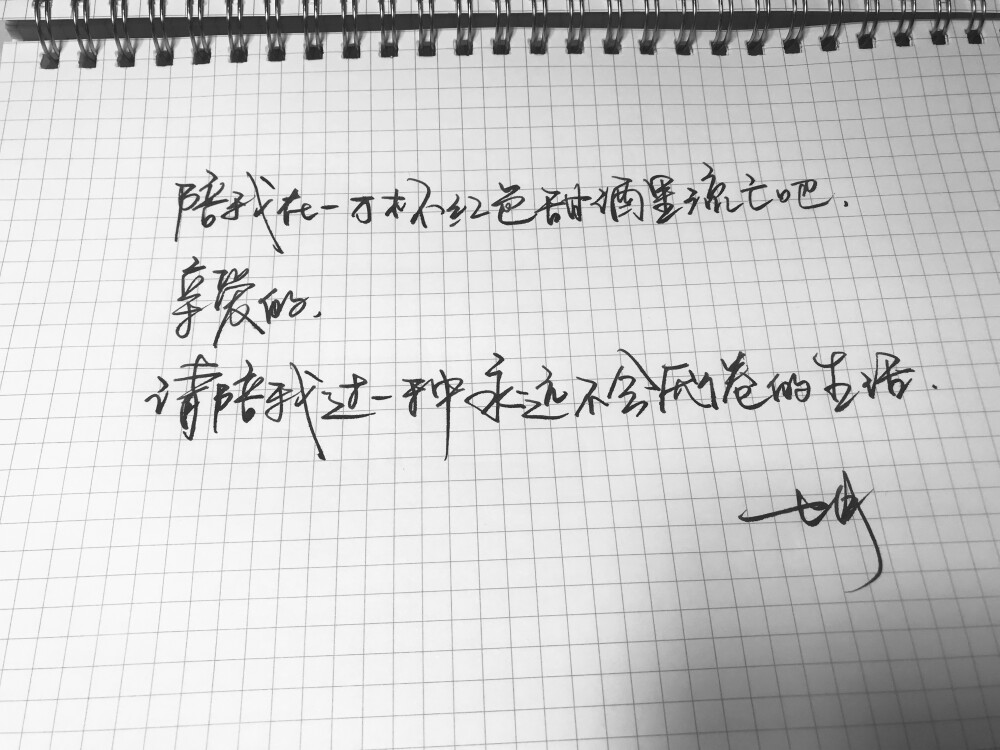 陪我在一万杯红色甜酒里流亡吧.
亲爱的.
请陪我过一种永远不会厌倦的生活.